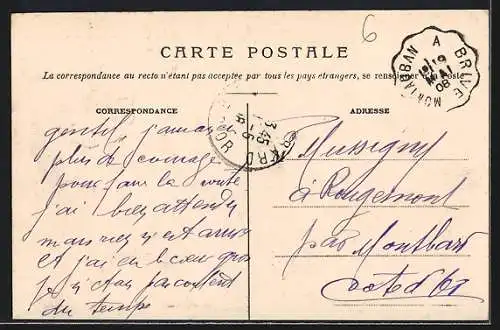 6
CARTE POSTALE
La correspondance au recto n'étant pas acceptée par tous les pays étrangers, se renseigner à la Poste
MONTAUBAN A BRIVE
19
MAI
08
CORRESPONDANCE
ADRESSE
3 45
gentil j'aurai
plus de courage
pour faire la route
j'ai bien attendu
mais rien n'est arrivé
et j'ai le coeur gros
je n'étais pas content
du temps
Mussigny
à Rougemont
par Montbard
Cote d'Or